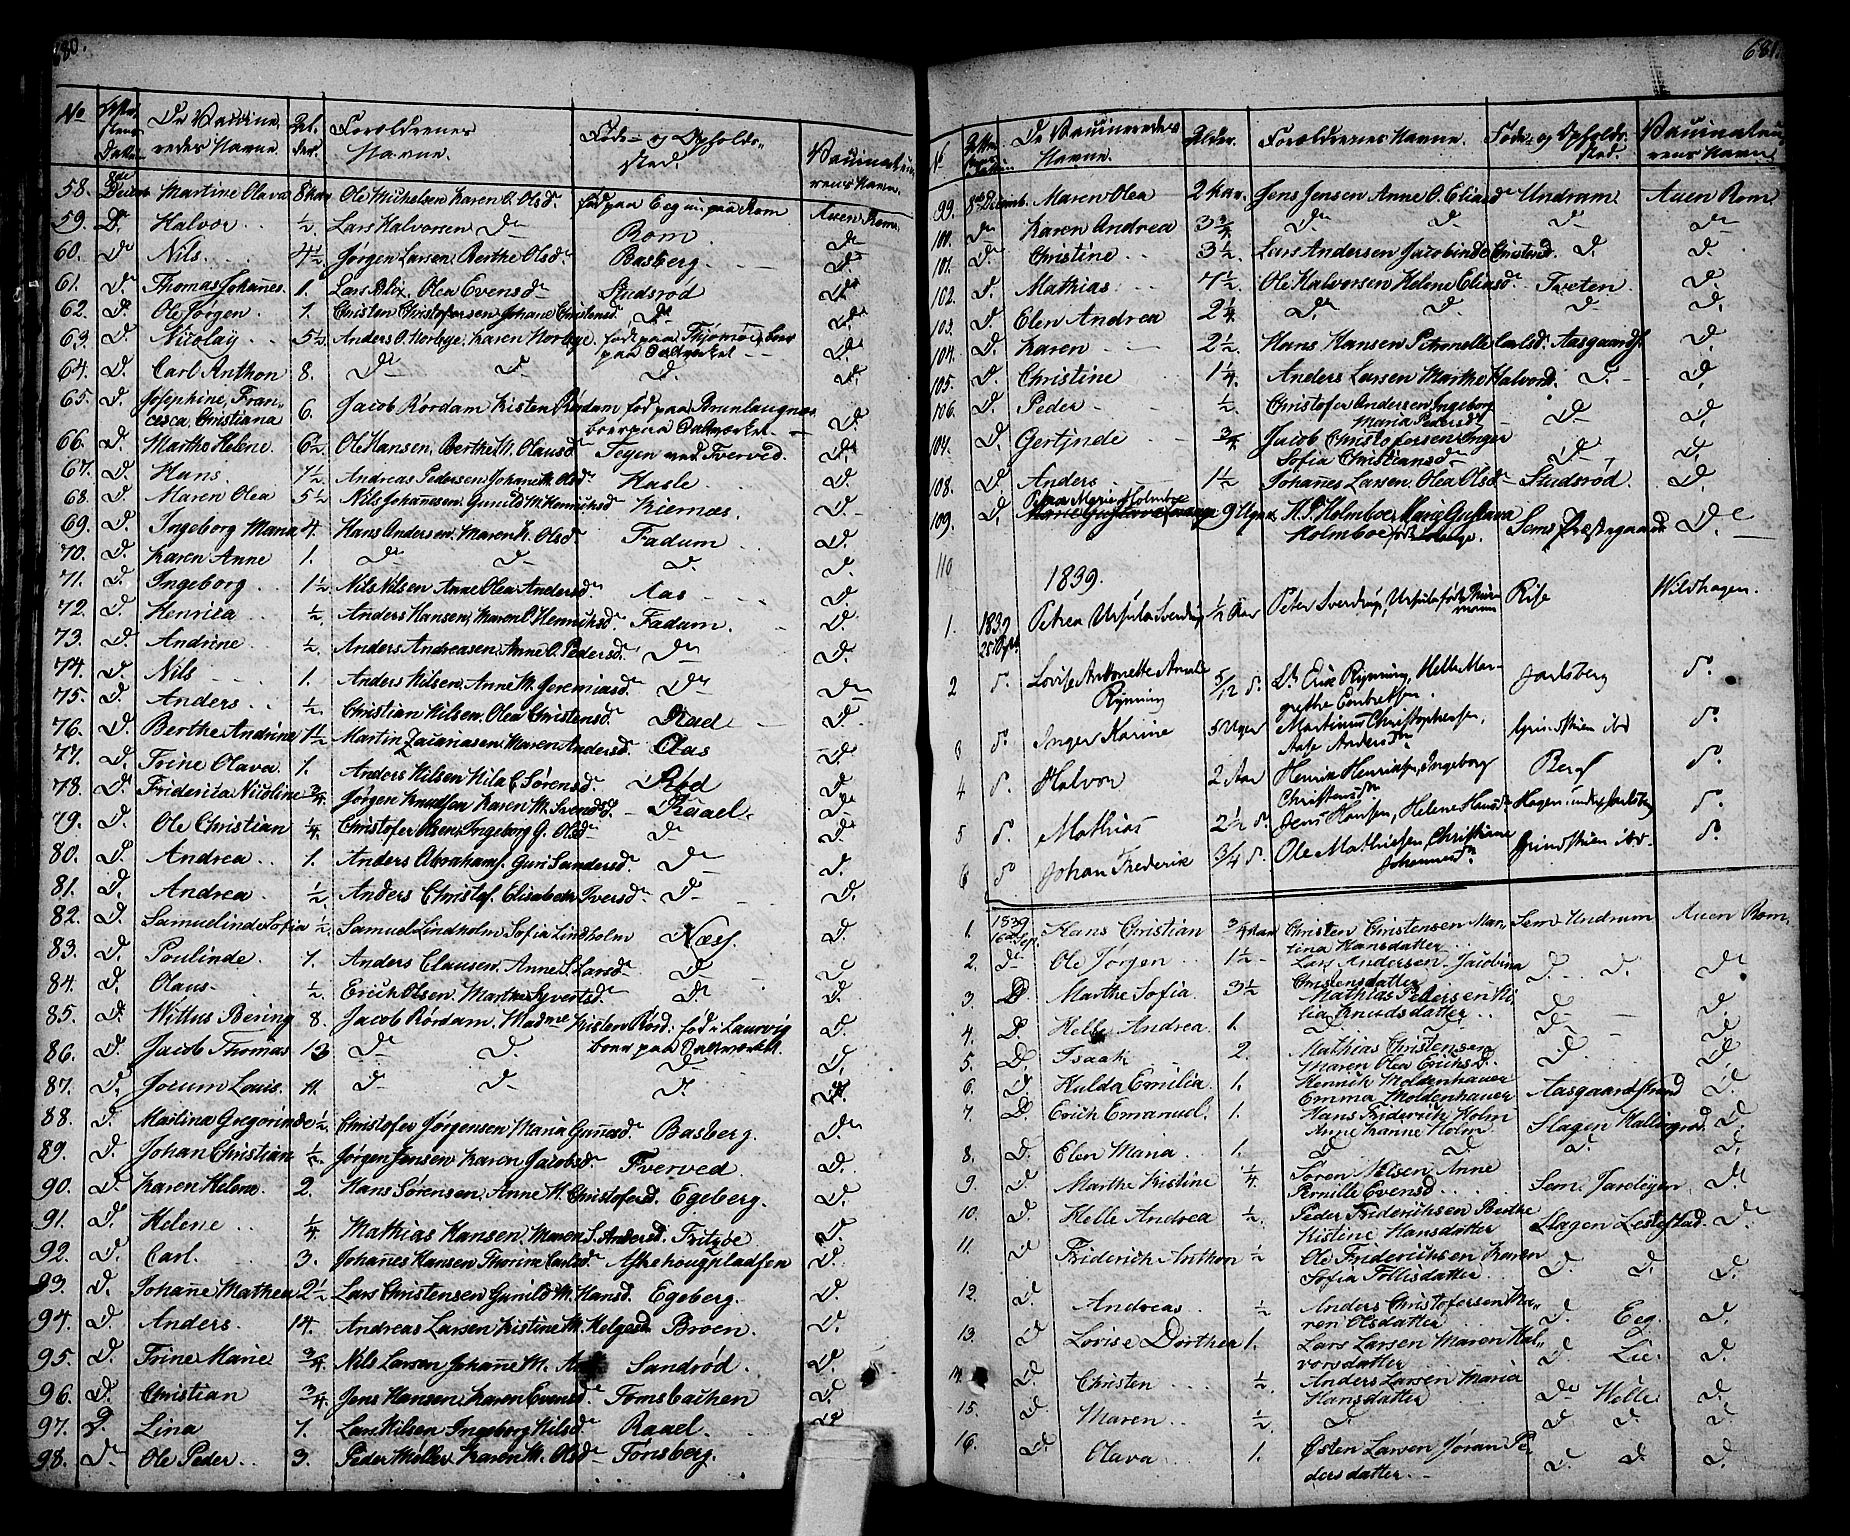 680.
No
De Vaccine
redes Navne.
Forældrenes
Navne.
Føde- og Opholds-
sted.
Vaccinatu
rens Navn.
58. Martine Olava 8 Ole Michelsen Karen O. Olsd. Auen Rom.
59. D. Halvor ½ Lars Halvorsen Do Rom. Do
60. Do Nils 4½ Jørgen Larsen, Berthe Olsdr Basberg. Do
61. Do Thomas Johañes. 1. Lars Blix, Olea Evensd Studsrød Do
62. D. Ole Jørgen. 1. Christen Christofersen Johane Christensd. Do Do
63. D. Nicolay 5½ Anders O. Norbye, Karen Norbye. fød paa Tjømøe, boer
paa Valværket Do
64. D. Carl Anthon 8. Do Do D. Do
65. D. Josephine Fran-
cesca Christiana 6. Jacob Rördam Kisten Rördam fød paa Brunlaugnæs
boer paa Valværket D.
66. D. Marthe Helene. 6½ Ole Hansen, Berthe M. Olausd Do
67. D. Hans. Andreas Pedersen Johane M. Olsd Hasle D.
68. D. Maren Olea 5½ Nils Johañesen, Gunild M. Henrichsd Kiernæs. D.
69. D. Ingeborg Maria 4. Hans Andersen, Maren K. Olsd. Fadum D.
70. D. Karen Anne 1. Do Do D. D.
71. D. Ingeborg. 1½ Nils Nilsen Anne Olea Andersd. Aas D.
72. D. Henrica ½ Anders Hansen, Karen O. Henrichsd. Fadum. D.
73. D. Andrine ½ Anders Andreasen, Anne O. Pedersd. Do D.
74. D. Nils 1. Anders Nilsen, Anne M. Jeremiasd. Do D.
75. D. Anders ½ Christian Nilsen. Olea Christensd. Do
76. D. Berthe Andrine 1½ Martin Zacariasen, Maren Andersd. Aas D.
77. D. Trine Olava. 1. Anders Nilsen Sørensd. Rød D.
78. D. Friderica Nicoline ¾ Jørgen Knudsen Karen M. Svendsd. Raael. D.
79. D. Ole Christian ¼ Christofer Olsen, Ingeborg G. Olsd. D. D.
80. D. Andrea 1. Anders Abrahams. Guri Sandersd. Do D.
81. D. Andrea. ½ Anders Christof. Elisabeth Iversd. D. D.
82. D. Samuelinde Sofia ½ Samuel Lindholm Sofia Lindholm Næss. D.
83. D. Paulinde. 7. Anders Clausen. Anne S. Larsd. D. D.
84. D. Olaus. ½ Erich Olsen. Marthe Syvertsd. D. D.
85. D. Wittus Bering 8. Jacob Rördam. Madme Kisten Rörd: fød i Laurvig
boer paa Valværket. D.
86. D. Jacob Thomas 13 D. D. D. D.
87. D. Jocum Louis. 11. D. D. D. D.
88. D. Martina Gregorinde ½ Christofer Jørgensen Maria Guñesd. Basberg. D.
89. D. Johan Christian ½ Jørgen Jensen Karen Jacobsd. Tverved D.
90. D. Karen Helena. 2. Hans Sørensen, Anne M. Christofersd. Egeberg. D.
91. D. Helene ¼ Mathias Hansen, Maren S. Andersd. Fritzøe D.
92. D. Carl. 3. Johañes Hansen Thorine Carlsd. Askehougpladsen D.
93. D. Johañe Mathea 2½ Lars Christensen Gunild M. Hansd. Egeberg. D.
94. D. Anders. 14. Andreas Larsen Kistine M. Helgesd. Broen. D.
95. D. Trine Marie ¾ Nils Larsen Johañe M. Sandrød. D.
96. D. Christian ¾ Jens Hansen. Karen Evensd. Tomsbakken D.
97. D. Lina 7. Lars Nilsen Ingeborg Nilsd. Raael. D.
98. Do Ole Peder 3. Peder Møller Karen M. Olsd. Tønsberg.
681.
No
De Vaccineredes
Navne.
Alder.
Forældrenes Navne.
Føde- og Opholds
sted.
Vaccinateu
rens Navn.
99. 8de Decemb. Maren Olea 2 Aar. Jens Jensen Anne O. Eliasd Undrum, Auen Rom.
100. Do Karen Andrea 3¾ Do D. D. Do
101. D. Christine 3½ Lars Andersen Jacobine Christensd. D. D.
102. D. Mathias Ole Halvorsen Helene Eliasd. Tveten D.
103. D. Elen Andrea 2¼ D. D. D. D.
104. D. Karen 2½ Hans Hansen Petronelle Carlsd. Aasgaards. D.
105. D. Christine 1¼ Anders Larsen Marthe Halvord. D. D.
106. D. Peder ½ Christofer Andersen Ingeborg
Maria Pedersd D. D.
104. D. Gertinde ¾ Jacob Christofersen Inger
Sofia Christiansd D. D.
108. D. Anders 1½ Johañes Larsen. Olea Olsd Studsrød D.
109. D. Marie Holmboe 9 Uger H. P. Holmboe Marie Gustava
Holmboe Sems Præstegaard D.
110
1839.
1. 1839 Petrea Ursula Sverdrup ½ Aar Peter Sverdrup, Ursula Rise Wildhagen.
2 do. Lovise Antonette Amalie
Rynning 5/12 do. Lt. Eric Rynning, Helle Mar-
grethe Jarlsberg do.
3 do. Inger Karine 5 Uger Martinus Christophersen,
Aase Andersdtr do.
4 do. Halvor 2 Aar Henrik Henriksen, Ingeborg
Christensdtr Berg do.
5 do. Mathias 2½ do. Jens Hansen, Helene Hansd. Hagen under Jarlsberg do.
6 do Johan Frederik ¾ do. Ole Mathiesen, Christiane
Johannesdtr do.
1. 1839 Hans Christian ¾ Aar Christen Christensen Mar-
tina Hansdatter Sem Undrum Auen Rom.
2. Do Ole Jørgen 1½ Lars Andersen Jacobina
Christensdatter D. D. Do
3. D. Marthe Sofia. 3½ Mathias Pedersen
Knudsdatter D. D.
4. D. Helle Andrea 1. D. D. D. D.
5. D. Isaak 2. Mathias Christensen
Maren Olea Erichsd. D. D.
6. D. Hulda Emilia. 1. Henrik Moldenhauer
Emma Moldenhauer Aasgaardstrand D.
7. D. Erich Emanuel. 1. Hans Friderich Holm
Anne Karine Holm Slagen D.
8. D. Elen Maria 1. D. D. D. D. D.
9. D. Marthe Kistine ¼ Søren Nilsen Anne
Pernille Evensd. Sem. D.
10. D. Helle Andrea ½ Peder Friderichsen Berthe
Kistine Hansdatter Slagen D.
11. D. Friderich Anthon ½ Ole Friderichsen Karen
Sofia Tollisdatter D. D. D.
12. D. Andreas ½ Anders Christofersen Ma-
ren Olsdatter D. Eeg. D.
13. D. Lovise Dorthea 1. Lars Larsen Maren Hal-
vorsdatter D. Lie. D.
14. D. Christen ½ Anders Larsen Maria
Hansdatter Do Helle. D.
15. D. Maren ½ D. D. D. D.
16. D. Olava 1. Østen Larsen Jøran Pe-
dersdatter D. D. D.